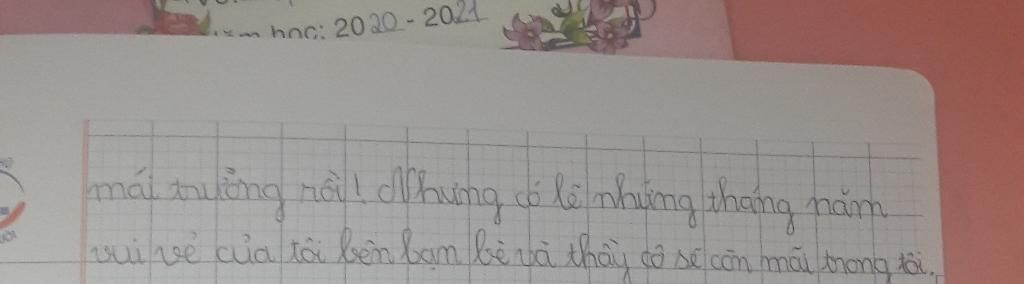 học: 2020 - 2021
mái trường rồi! Nhưng có lẽ những tháng năm
vui vẻ của tôi bên bạn bè và thầy cô sẽ còn mãi trong tôi.